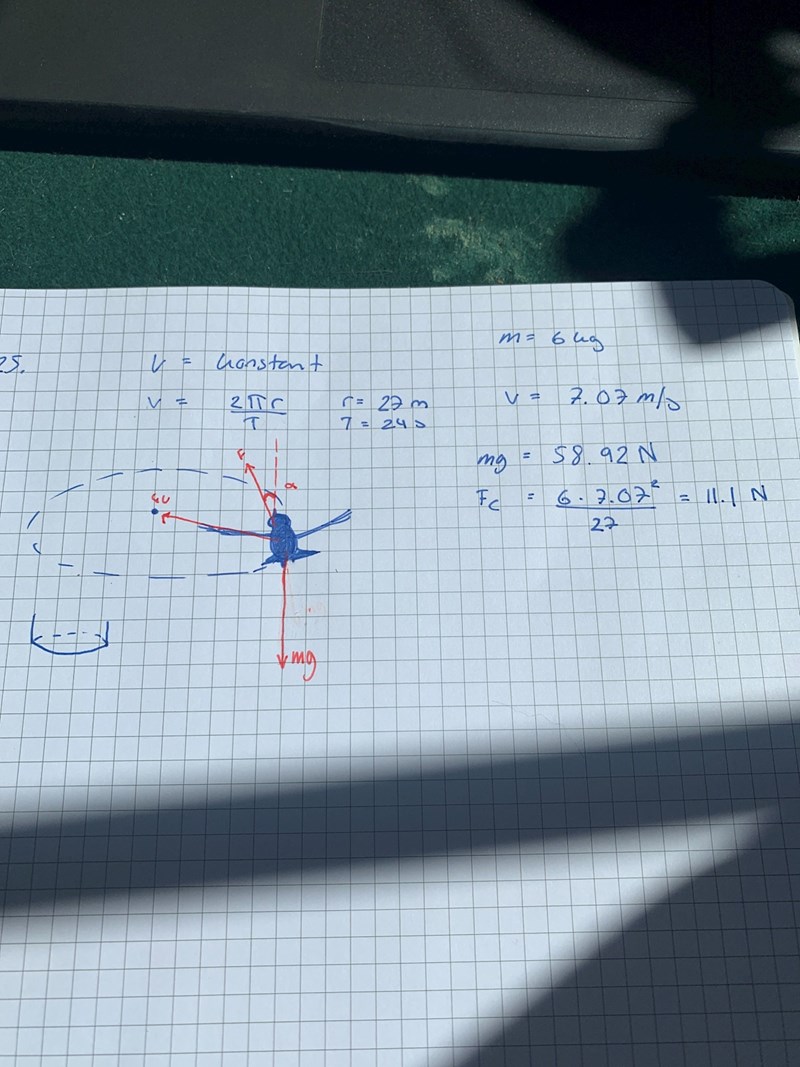 25.
V = konstant
m = 6 kg
V = 2πr / T
r = 27 m
T = 24 s
V = 7.07 m/s
mg = 58.92 N
Fc = 6 · 7.07² / 27 = 11.1 N
F
α
mg